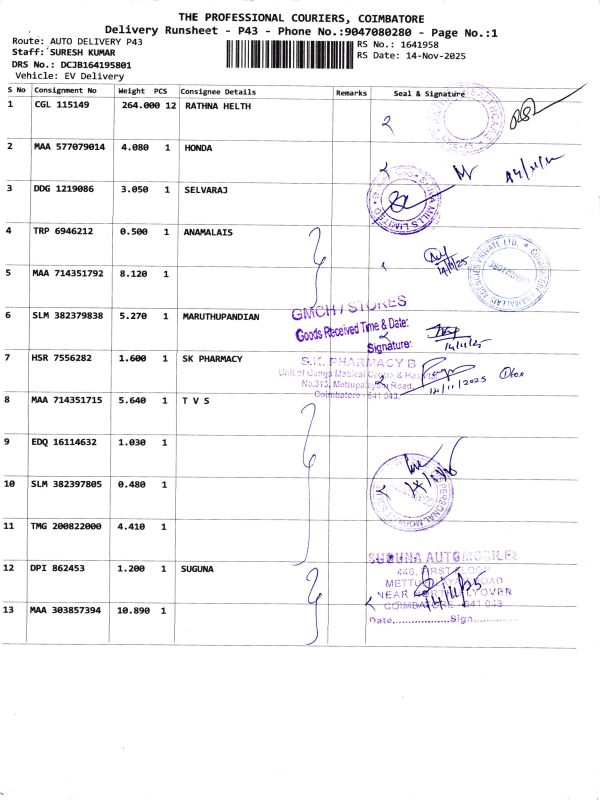 THE PROFESSIONAL COURIERS, COIMBATORE
Delivery Runsheet - P43 - Phone No.:9047080280 - Page No.:1
Route: AUTO DELIVERY P43
RS No.: 1641958
Staff: SURESH KUMAR
RS Date: 14-Nov-2025
DRS No.: DCJB164195801
Vehicle: EV Delivery
S No Consignment No Weight PCS Consignee Details Remarks Seal & Signature
1 CGL 115149 264.000 12 RATHNA HELTH
2 MAA 577079014 4.080 1 HONDA
3 DDG 1219086 3.050 1 SELVARAJ
4 TRP 6946212 0.500 1 ANAMALAIS
14/11/25
5 MAA 714351792 8.120 1
6 SLM 382379838 5.270 1 MARUTHUPANDIAN
GMCH / STORES
Goods Received Time & Date:
Signature:
14/11/25
7 HSR 7556282 1.600 1 SK PHARMACY
S.K. PHARMACY B
Unit of Ganga Medical Centre & Hospital
No.313, Mettupalayam Road,
Coimbatore - 641 043.
14/11/2025
8 MAA 714351715 5.640 1 T V S
9 EDQ 16114632 1.030 1
10 SLM 382397805 0.480 1
11 TMG 200822000 4.410 1
12 DPI 862453 1.200 1 SUGUNA
SUGUNA AUTOMOBILES
446, FIRST FLOOR
METTUPALAYAM ROAD
NEAR NORTH FLYOVER
COIMBATORE - 641 043
14/11/25
Date................Sign................
13 MAA 303857394 10.890 1